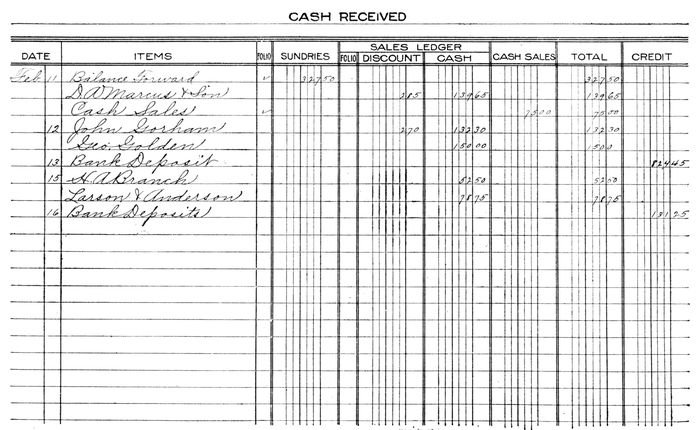 CASH RECEIVED
SALES LEDGER
DATE ITEMS FOLIO SUNDRIES FOLIO DISCOUNT CASH CASH SALES TOTAL CREDIT
Feb. 11 Balance Forward ✓ 327 50 327 50
D. A. Marcus & Son 2 85 139 65 139 65
Cash Sales ✓ 75 00 75 00
12 John Gorham 2 70 132 30 132 30
Geo. Golden 150 00 150 0
13 Bank Deposit 824 45
15 H. A. Branch 52 50 52 50
Larson & Anderson 78 75 78 75
16 Bank Deposits 131 25